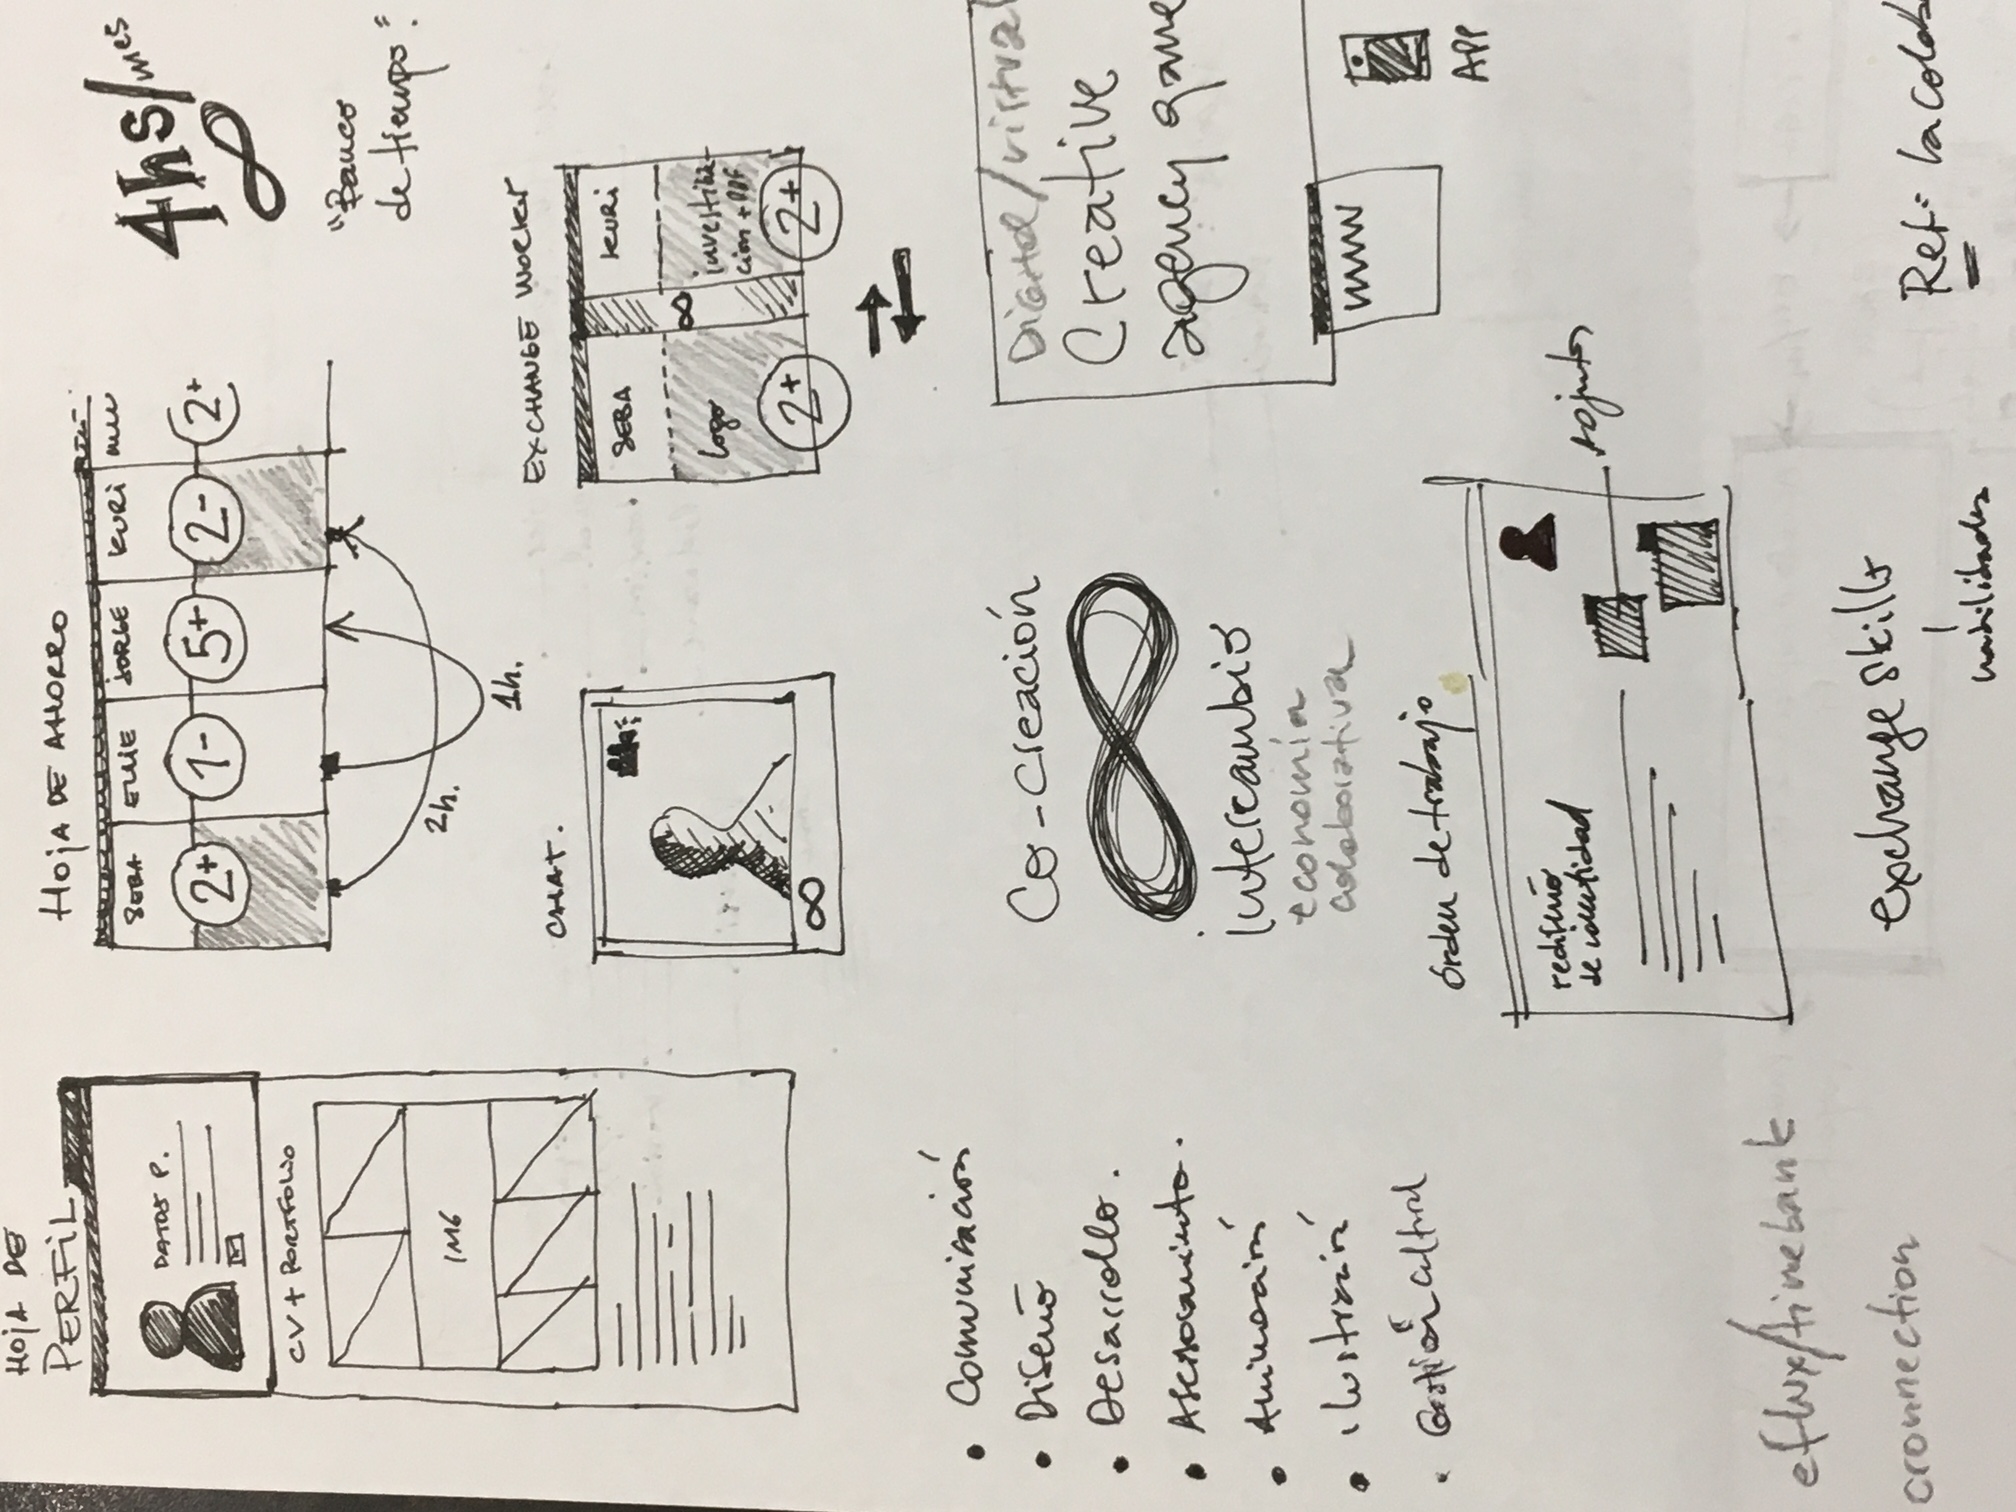 HOJA DE
PERFIL
DATOS P.
CV + PORTFOLIO
IMG
HOJA DE AHORRO
SEBA
ELLIE
JORGE
KURI
2+
1-
5+
2-
2+
2h.
1h.
4hs/mes
∞
"Banco
de tiempo"
CHAT.
∞
EXCHANGE WORKER
SEBA
KURI
∞
logo
investiga-
cion + PDF
2+
2+
• Comunicación
• Diseño
• Desarrollo.
• Asesoramiento.
• Animación
• ilustración
• Gestión cultural
Co-creación
∞
intercambio
economía
colaborativa
Digital/virtual
Creative
agency game
www
APP
órden de trabajo
rediseño
de identidad
Adjuntos
eflux/timebank
cronnection
exchange skills
habilidades
Ref: la colab